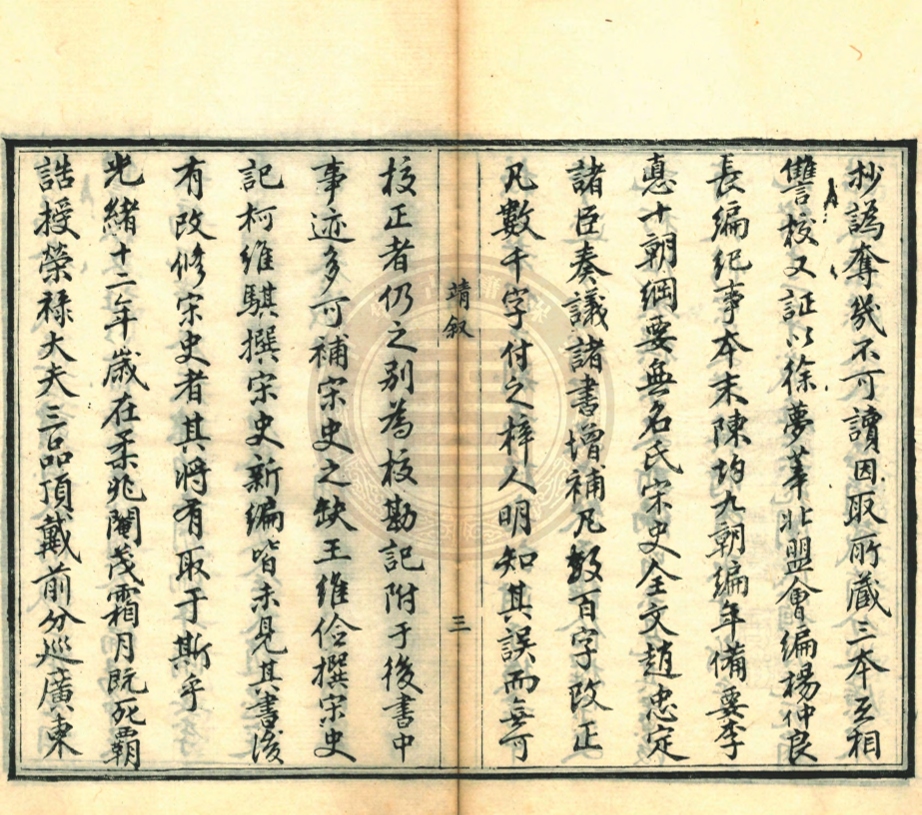 抄譌奪幾不可讀因取所藏三本互相
讐校又証以徐夢莘北盟會編楊仲良
長編紀事本末陳均九朝編年備要李
悳十朝綱要無名氏宋史全文趙忠定
諸臣奏議諸書增補凡數百字改正
凡數千字付之梓人明知其誤而無可
靖叙
三
校正者仍之别為校勘記附于後書中
事迹多可補宋史之缺王維儉撰宋史
記柯維騏撰宋史新編皆未見其書後
有改修宋史者其將有取于斯乎
光緒十二年歲在柔兆閹茂霜月既死霸
誥授榮祿大夫三品頂戴前分巡廣東